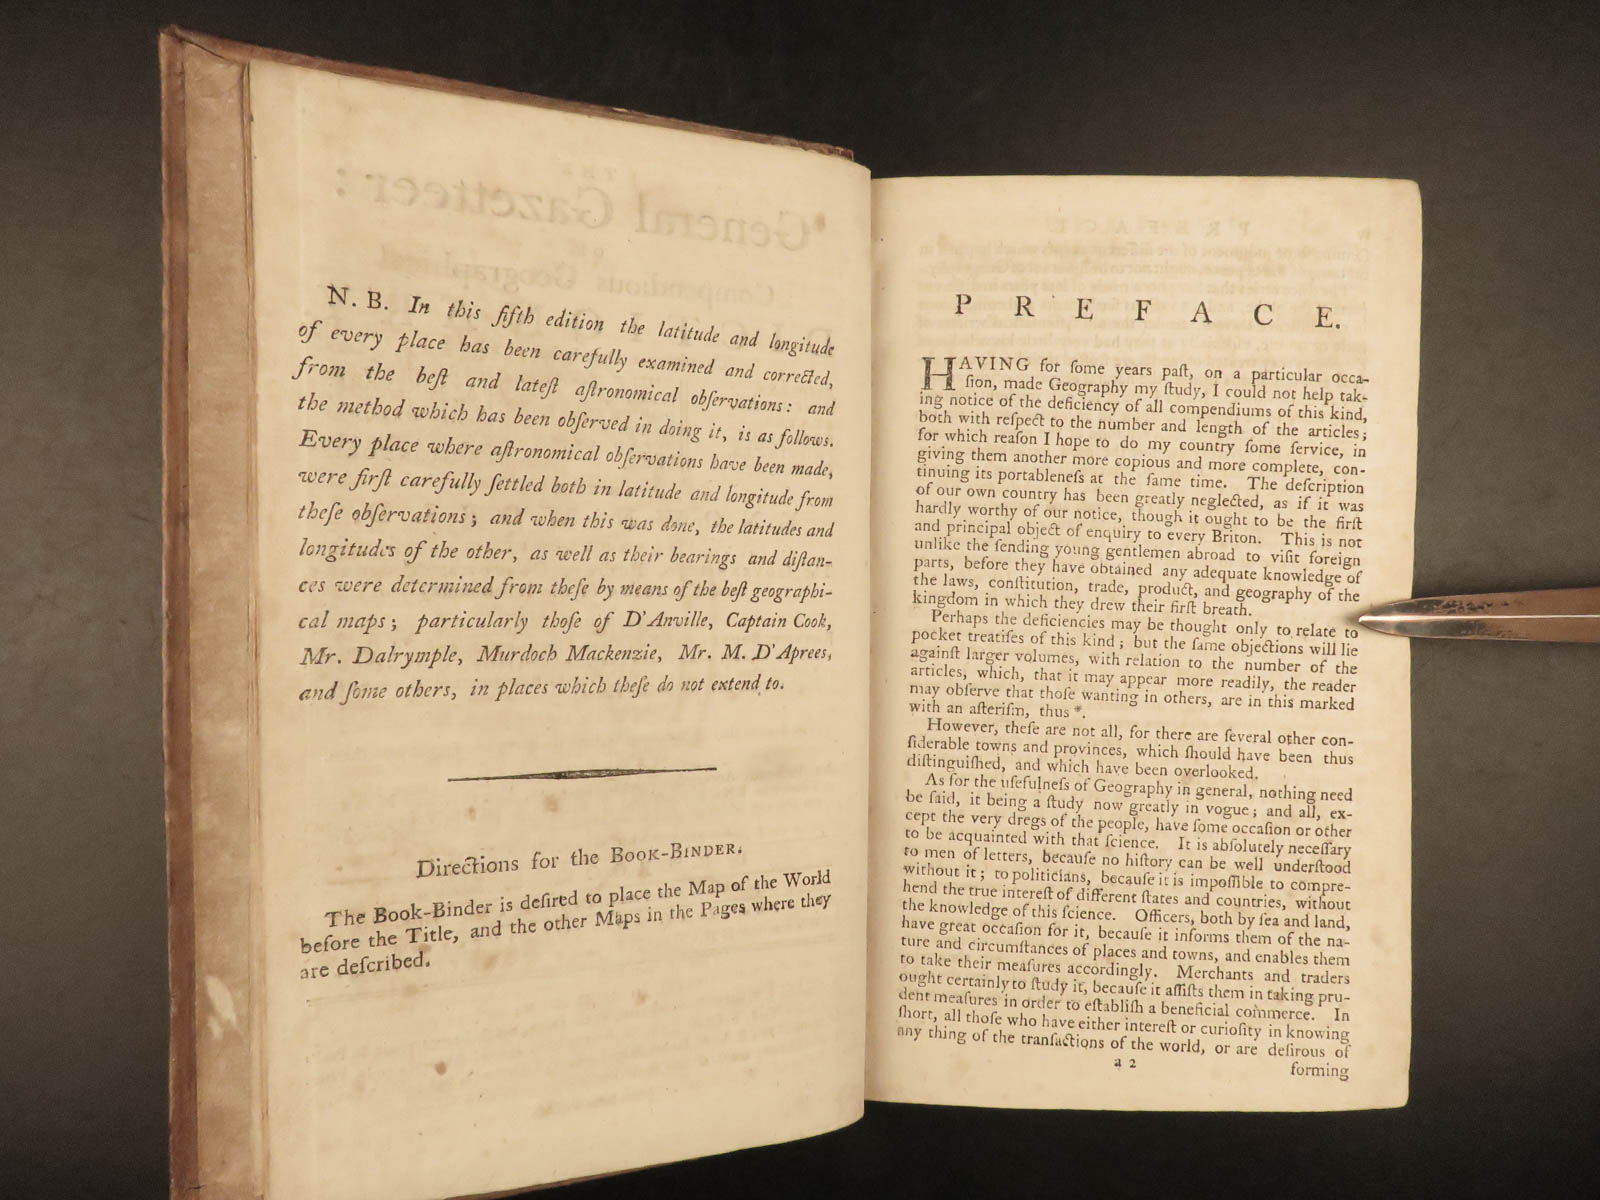 N. B. In this fifth edition the latitude and longitude
of every place has been carefully examined and corrected,
from the beſt and lateſt aſtronomical obſervations: and
the method which has been obſerved in doing it, is as follows.
Every place where aſtronomical obſervations have been made,
were firſt carefully ſettled both in latitude and longitude from
theſe obſervations; and when this was done, the latitudes and
longitudes of the other, as well as their bearings and diſtan-
ces were determined from theſe by means of the beſt geographi-
cal maps; particularly thoſe of D'Anville, Captain Cook,
Mr. Dalrymple, Murdoch Mackenzie, Mr. M. D'Aprees,
and ſome others, in places which theſe do not extend to.
Directions for the BOOK-BINDER.
The Book-Binder is deſired to place the Map of the World
before the Title, and the other Maps in the Pages where they
are deſcribed.
PREFACE.
HAVING for ſome years paſt, on a particular occa-
ſion, made Geography my ſtudy, I could not help tak-
ing notice of the deficiency of all compendiums of this kind,
both with reſpect to the number and length of the articles;
for which reaſon I hope to do my country ſome ſervice, in
giving them another more copious and more complete, con-
tinuing its portableneſs at the ſame time. The deſcription
of our own country has been greatly neglected, as if it was
hardly worthy of our notice, though it ought to be the firſt
and principal object of enquiry to every Briton. This is not
unlike the ſending young gentlemen abroad to viſit foreign
parts, before they have obtained any adequate knowledge of
the laws, conſtitution, trade, product, and geography of the
kingdom in which they drew their firſt breath.
Perhaps the deficiencies may be thought only to relate to
pocket treatiſes of this kind; but the ſame objections will lie
againſt larger volumes, with relation to the number of the
articles, which, that it may appear more readily, the reader
may obſerve that thoſe wanting in others, are in this marked
with an aſteriſm, thus *.
However, theſe are not all, for there are ſeveral other con-
ſiderable towns and provinces, which ſhould have been thus
diſtinguiſhed, and which have been overlooked.
As for the uſefulneſs of Geography in general, nothing need
be ſaid, it being a ſtudy now greatly in vogue; and all, ex-
cept the very dregs of the people, have ſome occaſion or other
to be acquainted with that ſcience. It is abſolutely neceſſary
to men of letters, becauſe no hiſtory can be well underſtood
without it; to politicians, becauſe it is impoſſible to compre-
hend the true intereſt of different ſtates and countries, without
the knowledge of this ſcience. Officers, both by ſea and land,
have great occaſion for it, becauſe it informs them of the na-
ture and circumſtances of places and towns, and enables them
to take their meaſures accordingly. Merchants and traders
ought certainly to ſtudy it, becauſe it aſſiſts them in taking pru-
dent meaſures in order to eſtabliſh a beneficial commerce. In
ſhort, all thoſe who have either intereſt or curioſity in knowing
any thing of the tranſactions of the world, or are deſirous of
a 2
forming